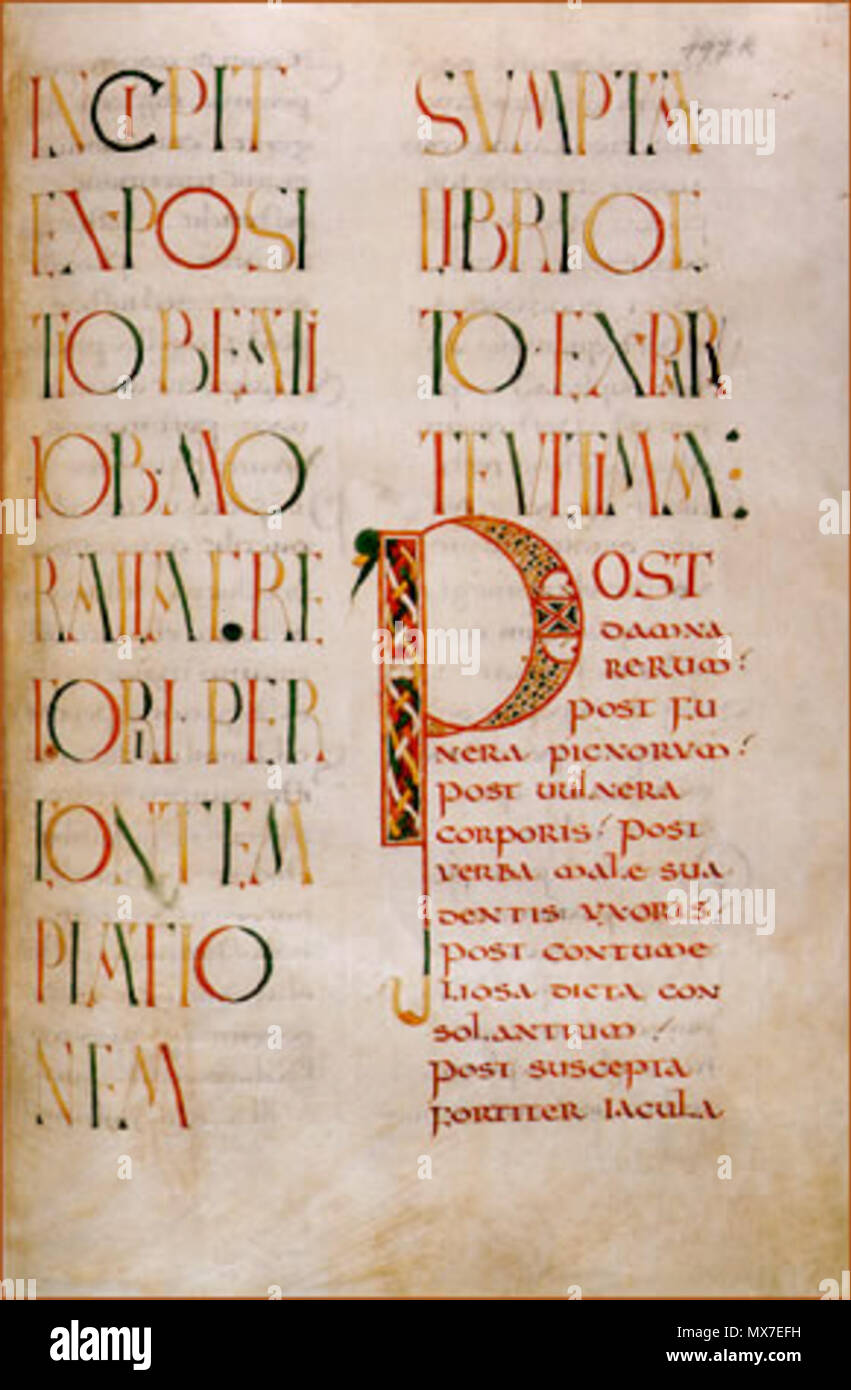 197R
INCIPIT
EXPOSI
TIO BEATI
IOB·MO
RALIA GRE
GORI·PER
CONTEM
PLATIO
NEM
SVMPTA
LIBRI OC
TO·EX·PAR
TE VLTIMA:
POST
DAMNA
RERUM:
POST FU
NERA PIGNORVM:
POST UULNERA
CORPORIS: POST
VERBA MALE SUA
DENTIS VXORIS:
POST CONTUME
LIOSA DICTA CON
SOLANTIUM:
POST SUSCEPTA
FORTITER IACULA
alamy
Image ID: MX7EFH
www.alamy.com